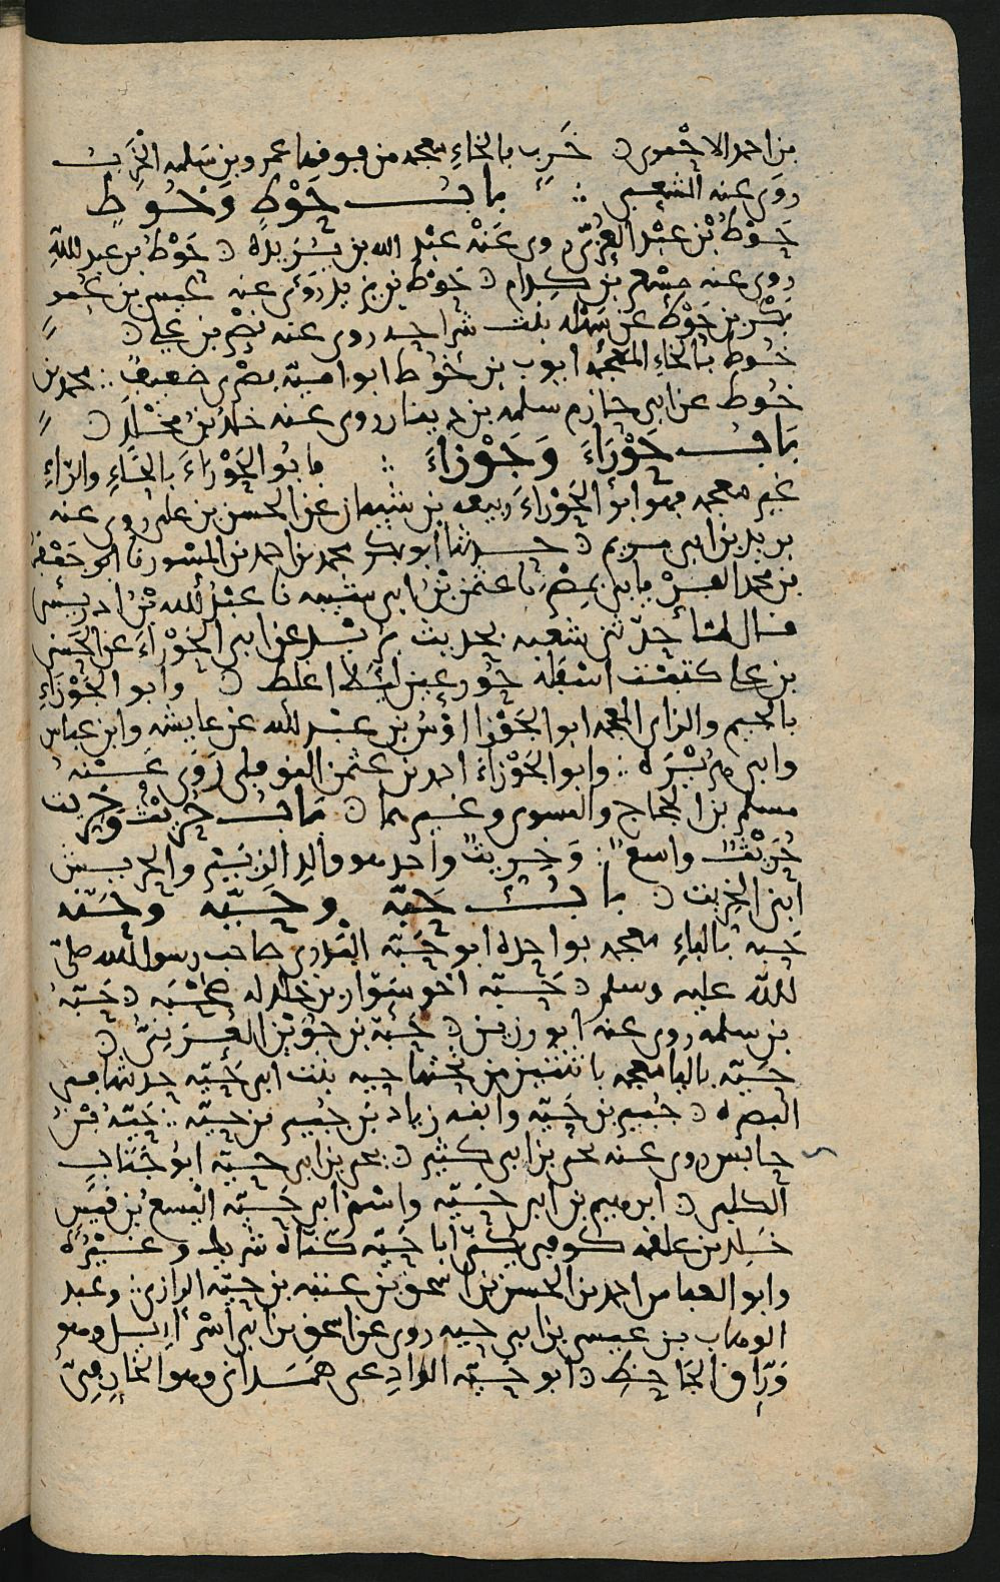 بن احمد الاخموي ۞ خَرِب بالخاءِ معجمه من فوقها عمرو بن سَلمه الخَرِب
روى عنه الشعبي ∴ بابُ حَوْطٍ وَخُوطٍ
حَوْطُ بْن عبْد العُزّى روى عَنْهُ عبْد الله بن بُرَيدةَ ۞ حَوْطُ بن عبد اللهِ
روى عنه مِسْعر بن كِدام ۞ حَوْط بن يزيد رَوَى عنه عيسى بن عُمر
بَكْر بن حَوْط عَن سَهْله بنت شراحيد روى عنه نصْر بن علي ۞
خُوط بالخاءِ المعجمه ايوب بن خُوط ابو اميّة بصْري ضعيفٌ ∴ محمد بن
خُوط عن ابي حازم سلمه بن دينار روى عنه خلدُ بنُ مَخْلَدٍ ۞
بَابُ حَوْرَاءَ وَجَوْزاءَ ∴ فابُو الحَوْرَاءَ بالحَاءِ والرّاءِ
غير معجمه فهو ابو الحَوْراءَ ربيعه بن شيبان عن الحسن بن علي روى عنه
بريد بن ابي مريم ۞ حدثنا ابو بكر محمد بن احمد بن المسور نا ابو جَعْفَر
بن محمد الفِرْيابي بمِصْر نا عثمن بْنُ ابي شيبه نا عبْدُ الله بْنُ ادريس
قال لما حدّثني شعبه بحديث بُرَيْد عن ابي الحَوْراء عن الحَسَن
بن علي كتبْت اسْفله حُور عين ليَلا اغلط ۞ وابو الجَوْزَاءِ
بالجيم والزاي المعجمه ابوا الجَوْزا اوْسُ بن عبْد الله عن عايشه وابن عباس
وابي هُرَيْرَه ∴ وابوا الجَوْزاءَ احمد بن عثمن النوفلي رَوَى عَنْهُ
مسلم بن الحجاج والفسوى وغيرهما ۞ بَابُ حُرَيْث وَخِرّيت
حُرَيْثٌ واسعٌ ∴ وَخِرّيتٌ واحد هو والد الزبَيْر والحريش
ابنى الخريت ۞ بابُ حَبّه وحَيّه وحَنّه
حَبه بالباءِ معجمه بواحدة ابو حَبّة البَدري صاحب رسول الله صلىّ
الله عليه وسلم ۞ حَبّة اخو سَوّار بن خلد له صُحْبَه ۞ حَبّه
بن سلمه روى عنه ابو رزين ۞ حَبّة بن جُوَيْن العُرَنيُّ ۞
حَيّه باليا معجمه باثنتين من تحتها حيه بنت ابي حَيّه حديثها في
البصره ۞ جُبير بن حَيّه وابنه زياد بن جُبير بن حيّه ∴ حَيّه بْنُ
حابس روى عنه يحيى بن ابي كثير ۞ يحيى بن ابي حيّه ابو جَنَاب
الكلبي ۞ ابرهيم بن ابي حَيّه واسْم ابي حَيّه اليسع بْن قيسٍ
خلد بن علقمه كوفي يكنّى ابا حَيّه كنّاه شريك وغَيْرُه
وابو العباس احمد بن الحسن بن اسحق بن عتبه بن حيّه الرازي ∴ وعبد
الوهاب بن عيسى بن ابي حيه روى عن اسحق بن ابي اسْرايل وهو
وَرّاق الجَاحِظِ ۞ ابو حَيّه الوادِعي هَمْدَاني وهو الخارِفيّ